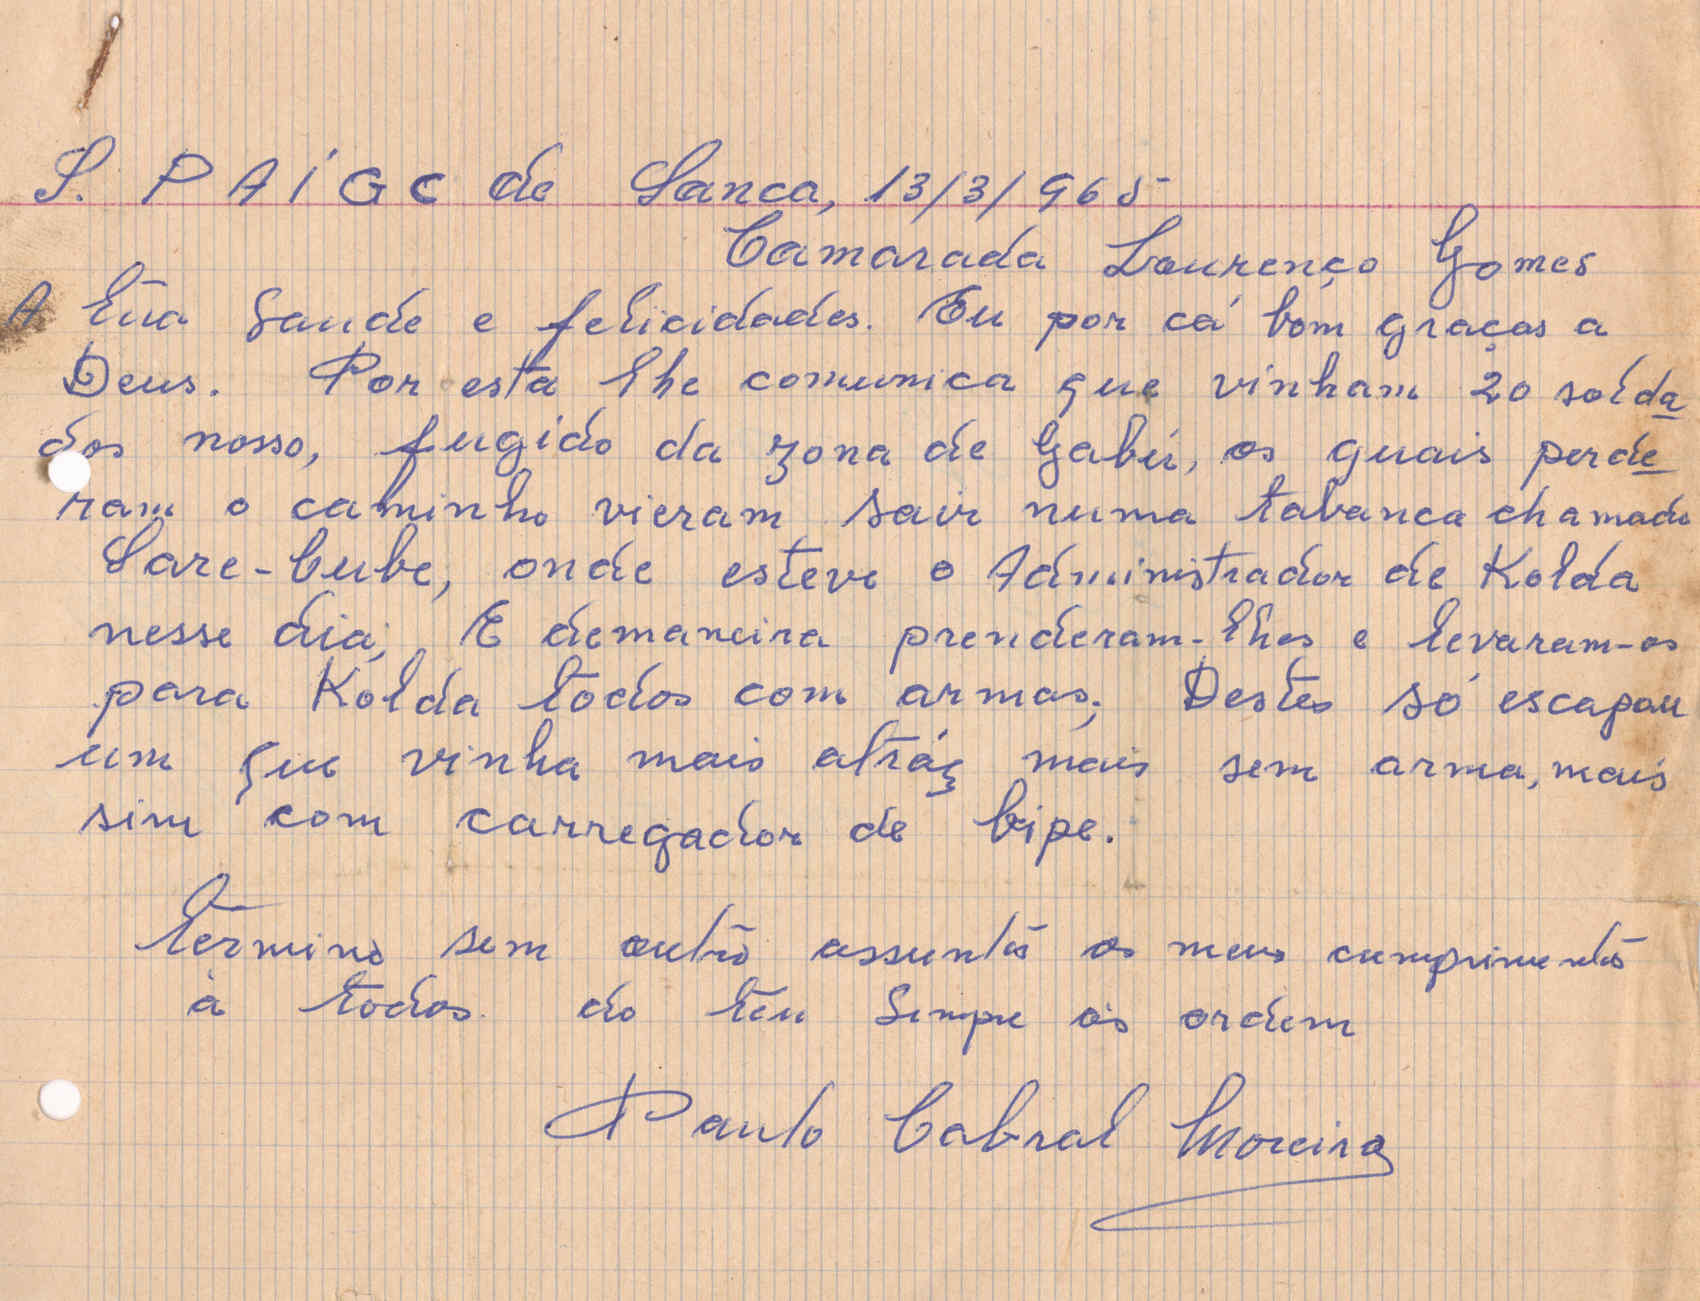 S. PAIGC de Sanca, 13/3/965
Camarada Lourenço Gomes
A tua Saude e felicidades. Eu por cá bom graças a
Deus. Por esta lhe comunica que vinham 20 solda
dos nosso, fugido da zona de Gabú, os quais perde
ram o caminho vieram sair numa tabanca chamado
Sare-bube, onde esteve o Administrador de Kolda
nesse dia; E demaneira prenderam-lhes e levaram-os
para Kolda todos com armas; Destes só escapou
um que vinha mais atráz mais sem arma, mais
sim com carregador de bipe.
Termino sem outro assunto os meus cumprimentos
à todos. do teu Sempre às ordem
Paulo Cabral Moreira